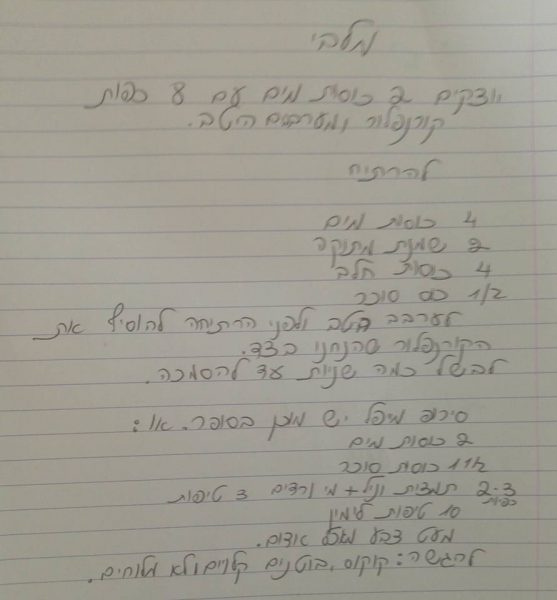 מלבי
יוצקים 2 כוסות מים עם 8 כפות
קורנפלור ומערבבים היטב.
להרתיח
4 כוסות מים
2 שמנת מתוקה
4 כוסות חלב
1/2 כוס סוכר
לערבב היטב ולפני הרתיחה להוסיף את
הקורנפלור שהנחנו בצד.
לבשל כמה שניות עד להסמכה.
סירופ מיפל יש מוכן בסופר. או:
2 כוסות מים
1 1/2 כוסות סוכר
2-3 תמצית וניל + מי ורדים 3 טיפות
כפיות
10 טיפות לימון
מעט צבע מאכל אדום.
להגשה: קוקוס, בוטנים קלויים ולא מלוחים.